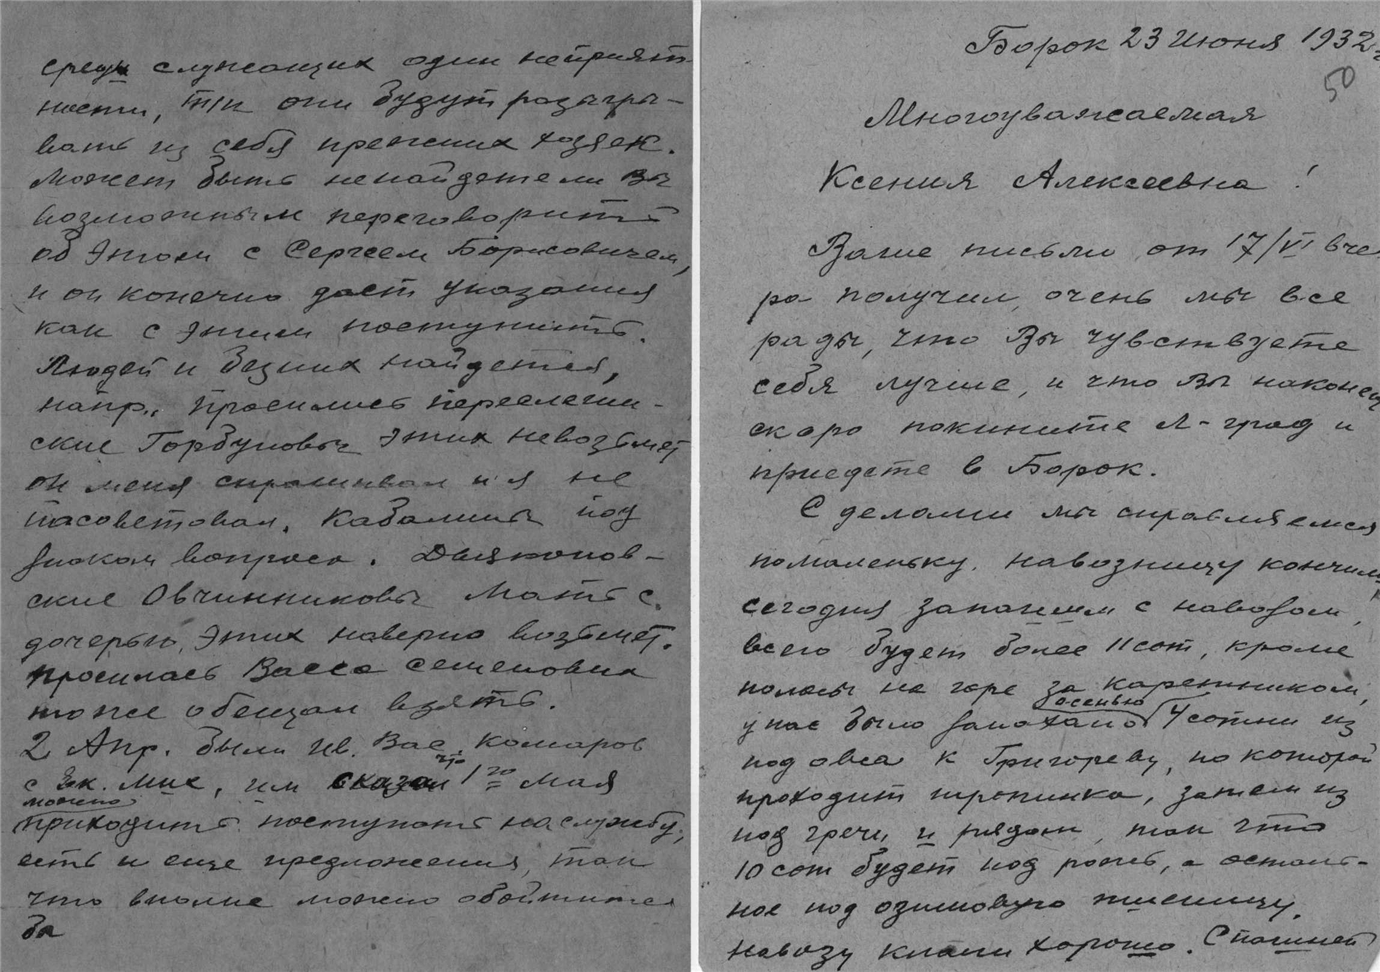 среди служащих одни неприят-
ности, т/к они будут разыгры-
вать из себя прежних хозяек.
Может быть ненайдете ли Вы
возможным переговорить
об этом с Сергеем Борисовичем,
и он конечно даст указания
как с этим поступить.
Людей и безних найдется,
напр., просились переселен-
ские Горбуновы этих невозьмет
он меня спрашивал и я не
пасоветовал. Кабалины под
знаком вопроса. Дьяконов-
ские Овчинниковы Мать с
дочерью, этих наверно возьмет.
просилась Васса Семеновна
тоже обещал взять.
2 Апр. были Ив. Вас. Комаров
с Ек. Мих, им сказал что 1го Мая
можно
приходить поступать на службу,
есть и еще предложения, так
что вполне можно обойтится
бы
Борок 23 Июня 1932 г.
50
Многоуважаемая
Ксения Алексеевна!
Ваше письмо от 17/VI вче
ра получил, очень мы все
рады, что Вы чувствуете
себя лучше, и что Вы наконец
скоро покините Л-град и
приедете в Борок.
С делами мы справляемся
помаленьку. навозницу кончили,
сегодня запашем с навозом,
всего будет более 11 сот, кроме
полосы на горе за каретником,
осенью
у нас было запахано 4 сотни из
под овса к Григореву, по которой
проходит тропинка, затем из
под гречи и рядом, так что
10 сот будет под рожь, а осталь-
ное под озимовую пшеницу.
навозу клали хорошо. С пашней